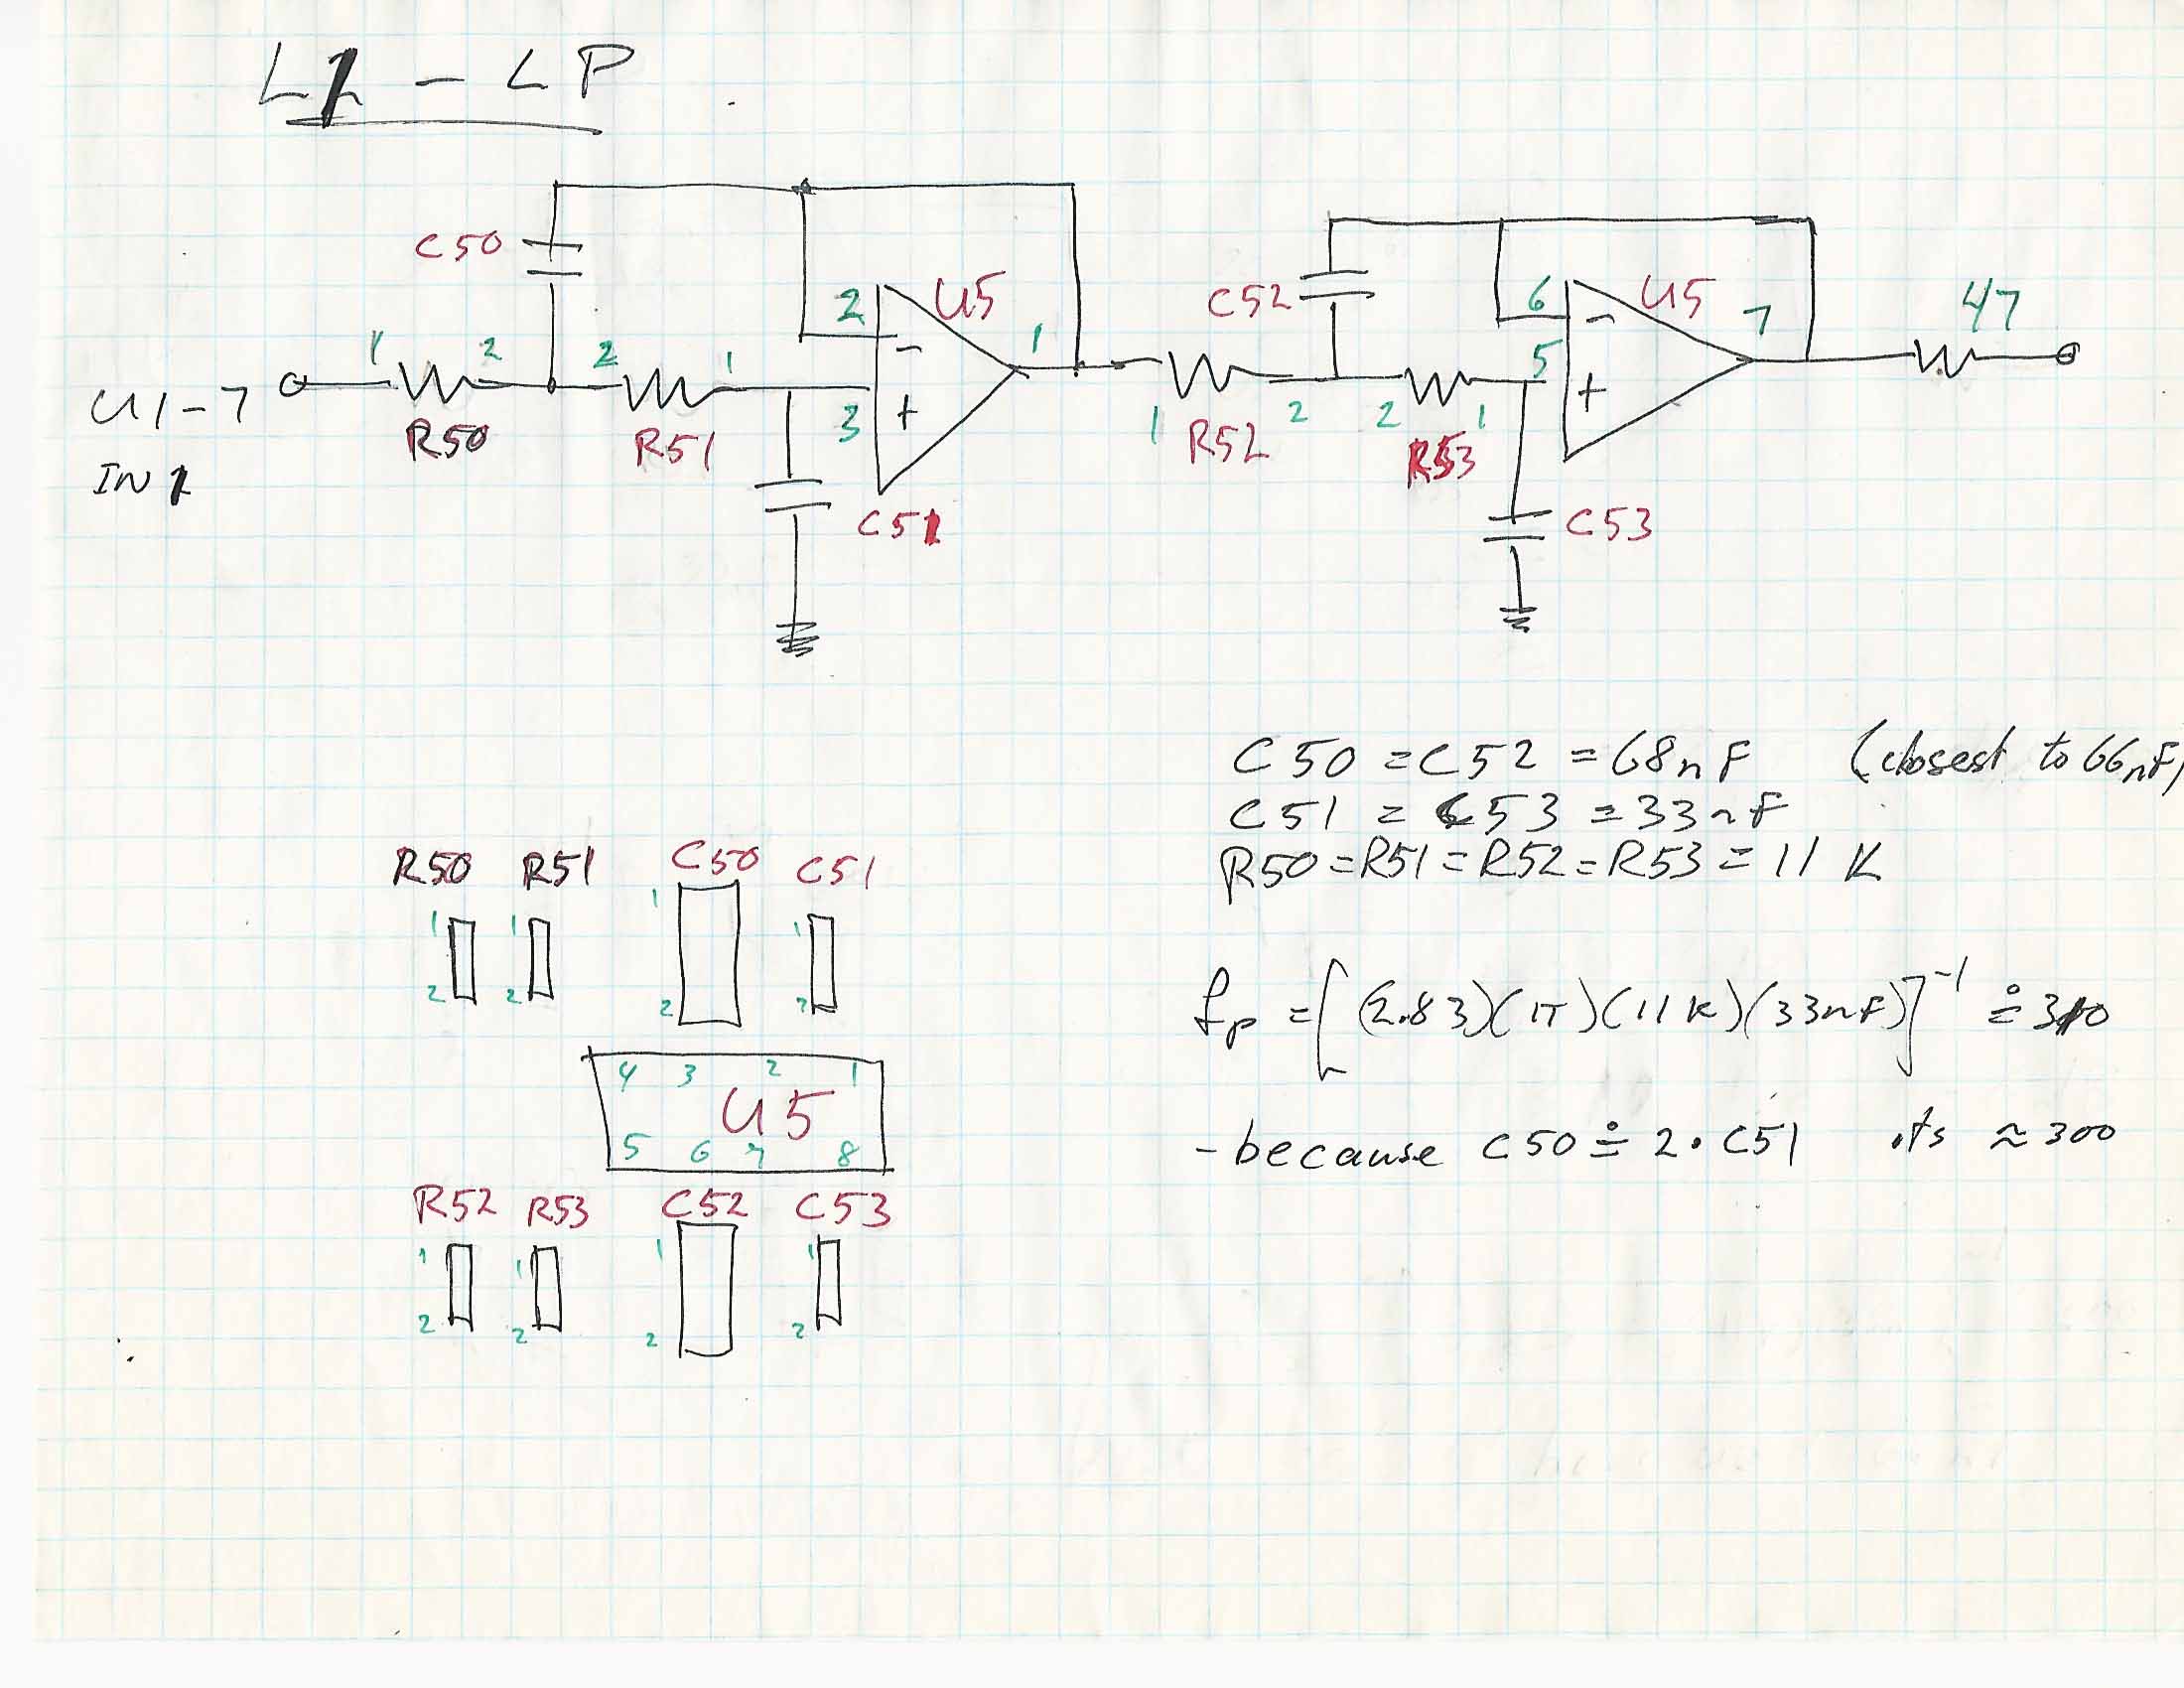 L1 - LP
C50
U5
C52
U5
47
2
1
6
7
1
2
2
1
5
U1-7
3
1
2
2
1
R50
R51
R52
R53
IN 1
C51
C53
C50 = C52 = 68nF (closest to 66nF)
C51 = C53 = 33nF
R50 = R51 = R52 = R53 = 11 K
R50 R51 C50 C51
1 1 1 1
2 2 2 2
fp = [(2.83)(π)(11K)(33nF)]⁻¹ ≐ 310
4 3 2 1
U5
5 6 7 8
- because C50 ≐ 2 · C51 its ≈ 300
R52 R53 C52 C53
1 1 1 1
2 2 2 2